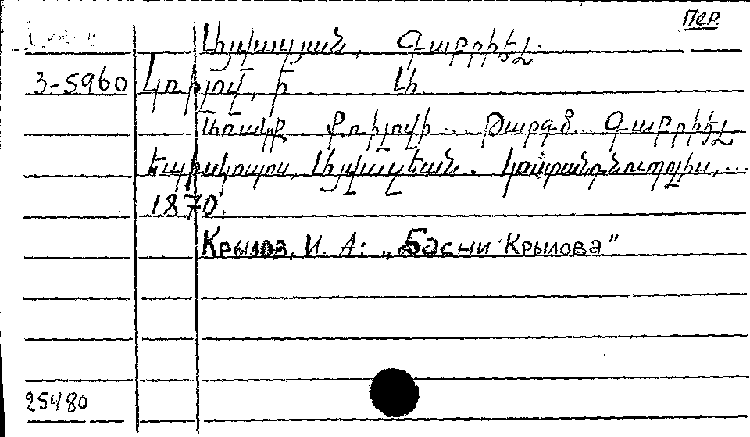 Пер.
Այվազյան, Գաբրիել
3-5960 Կռիլով, Ի. Ա.
Առակք Քռիլովի... Թարգմ. Գաբրիել
Եպիսկոպոս Այվազեան. Կոստանդնուպոլիս,...
1870.
Крылов, И. А: „Басни Крылова"
25480